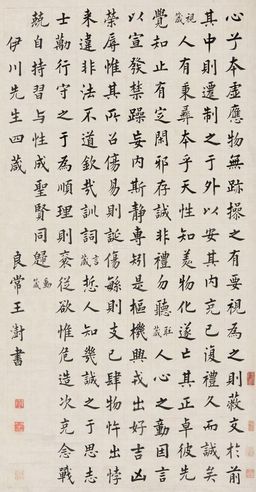 心兮本虛應物無跡操之有要視為之則蔽交於前
其中則遷制之于外以安其內克己復禮久而誠矣
視箴人有秉彝本乎天性知羑物化遂亡其正卓彼先
覺知止有定閑邪存誠非禮勿聽聽箴人心之動因言
以宣發禁躁妄內斯靜專矧是樞機興戎出好吉凶
榮辱惟其所召傷易則誕傷則支己肆物忤出悖
來違非法不道欽哉訓詞言箴哲人知幾誠之于思志
士勵行守之于為順理則裕從欲惟危造次克念戰
兢自持習與性成聖賢同歸動箴
伊川先生四箴
良常王澍書